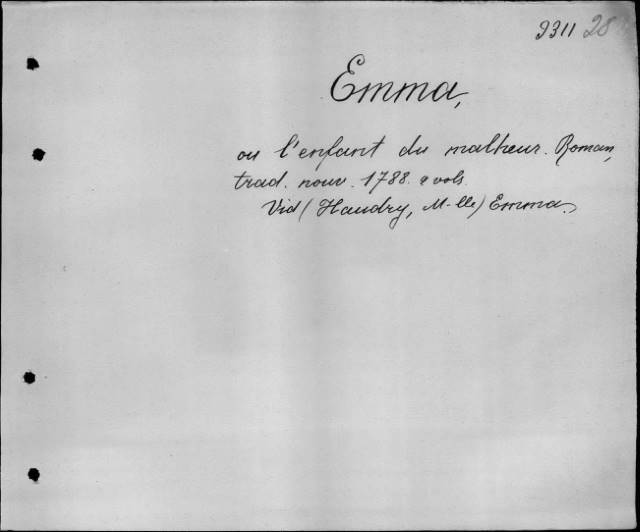 9311 28
Emma,
ou l'enfant du malheur. Roman,
trad. nouv. 1788. 2 vols.
Vid (Haudry, M-lle) Emma.